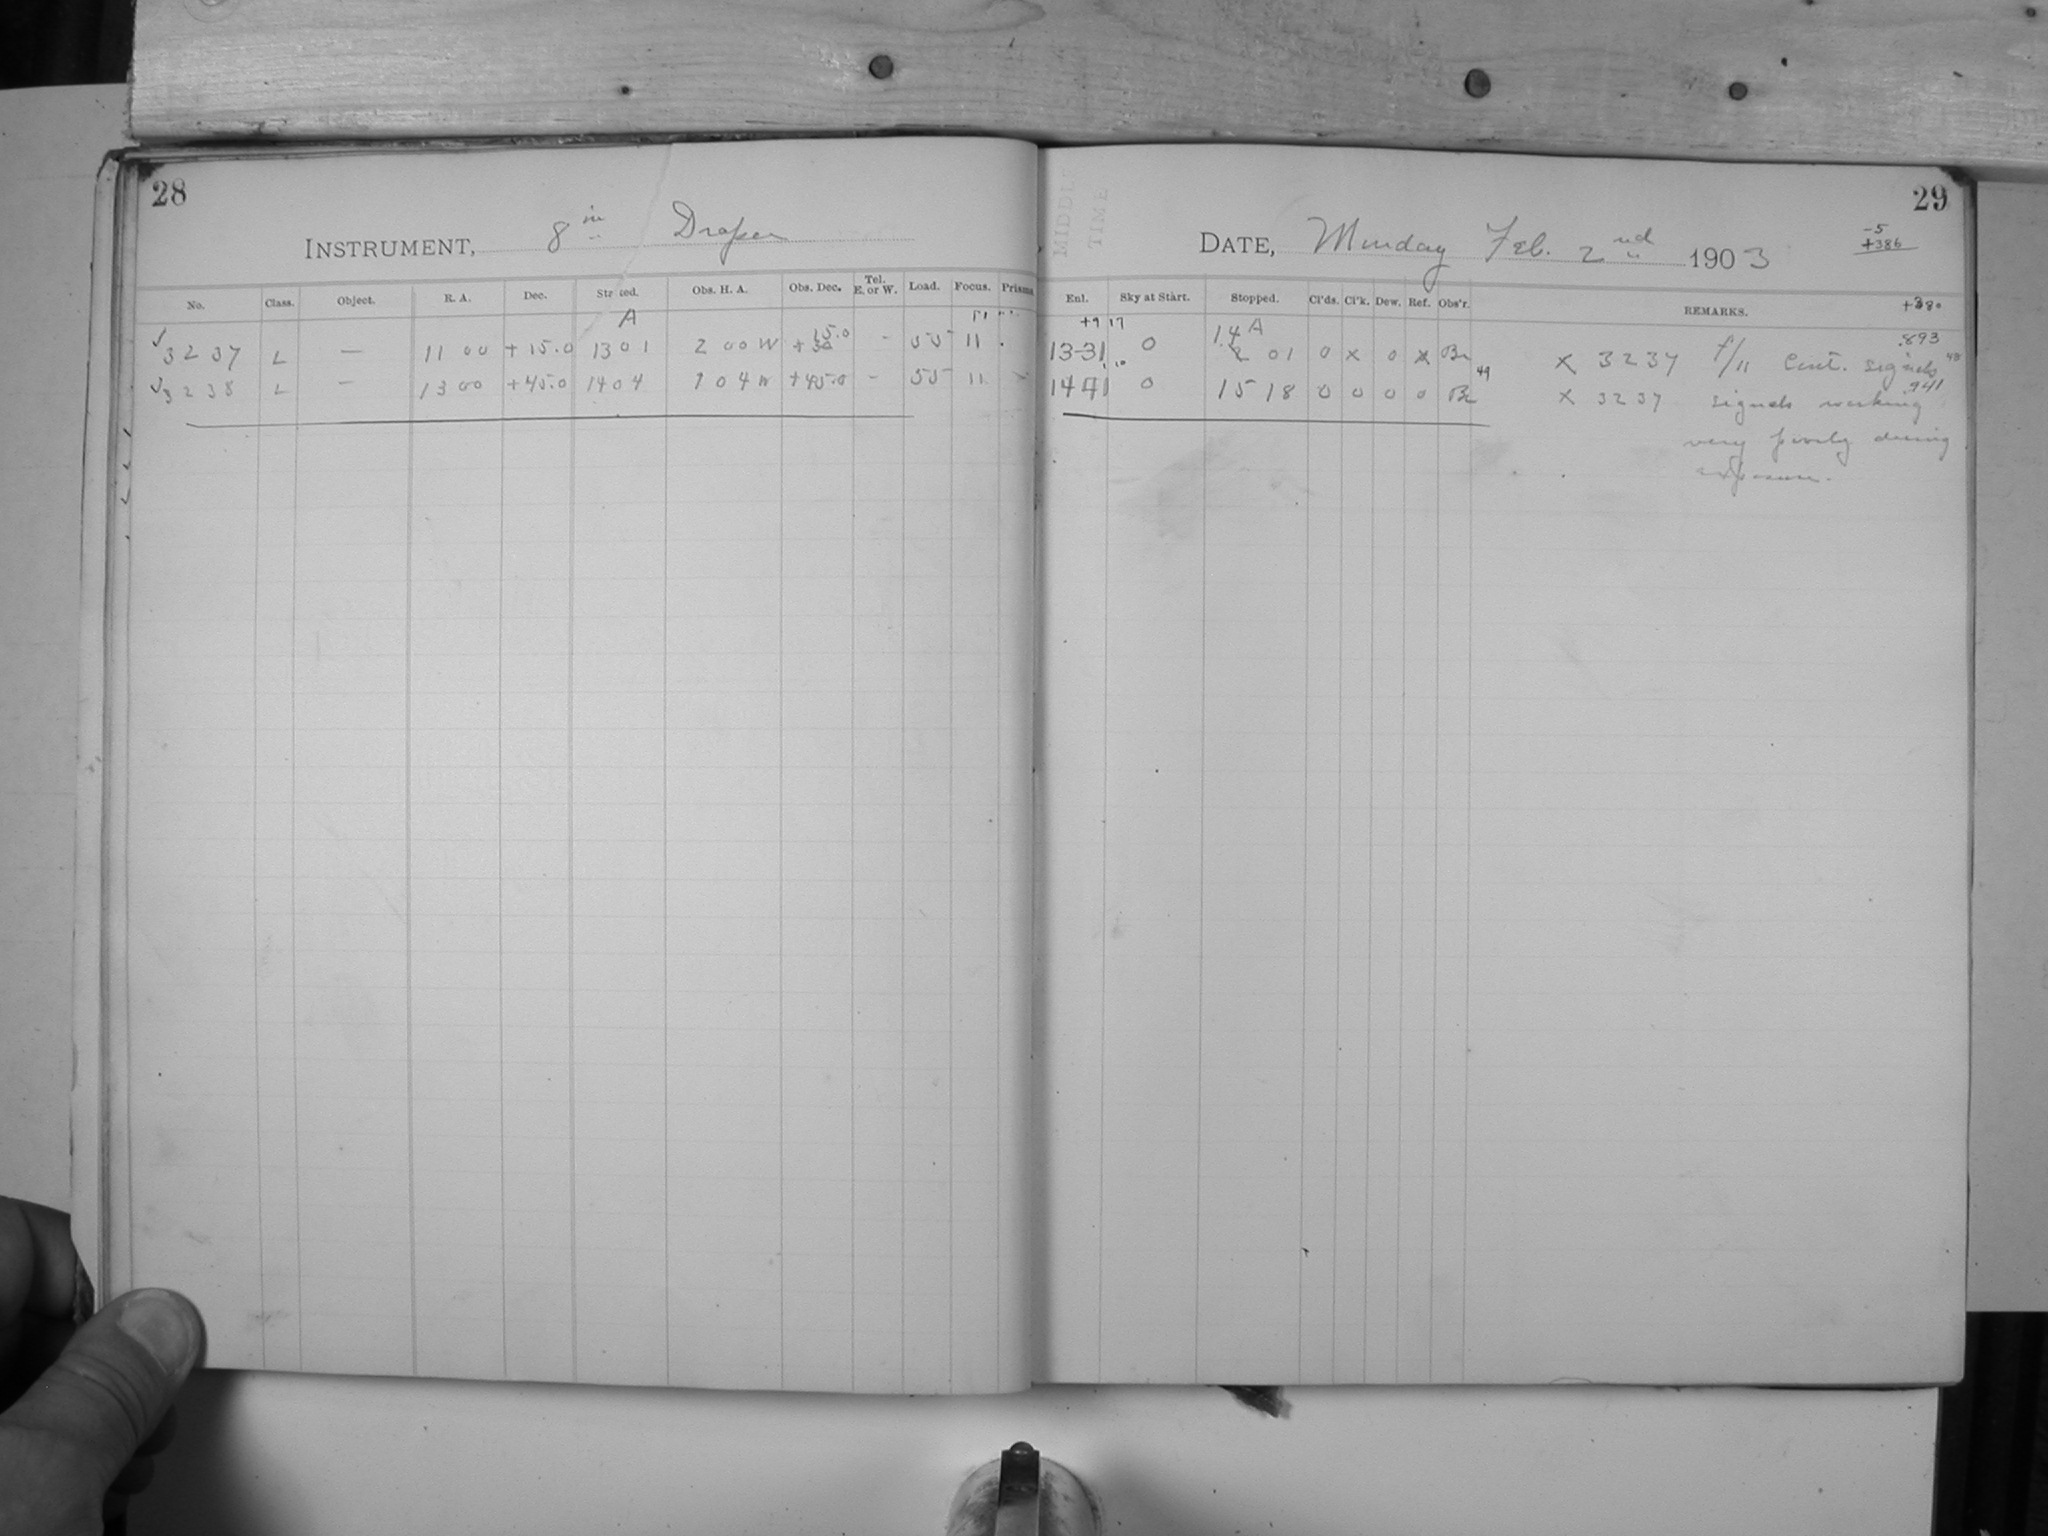 28
INSTRUMENT, 8 in Draper
No. Class. Object. R. A. Dec. Started. Obs. H. A. Obs. Dec. Tel. E. or W. Load. Focus. Prisms
A
15.0
✓ 3237 L — 11 00 +15.0 13 01 2 00 W +30 - 55 11
✓ 3238 L — 13 00 +45.0 14 04 1 04 W +45.0 - 55 11 -
29
MIDDLE
TIME
DATE, Monday Feb. 2nd 1903
-5
+386
Enl. Sky at Start. Stopped. Cl'ds. Cl'k. Dew. Ref. Obs'r. REMARKS. +380
+9 17
14 A
.893
13-31 0 2 01 0 x 0 x Br x 3237 f/11 Cont. signals 48
.10
49
.941
1441 0 15 18 0 0 0 0 Br x 3237 signals working
very poorly during
exposure.